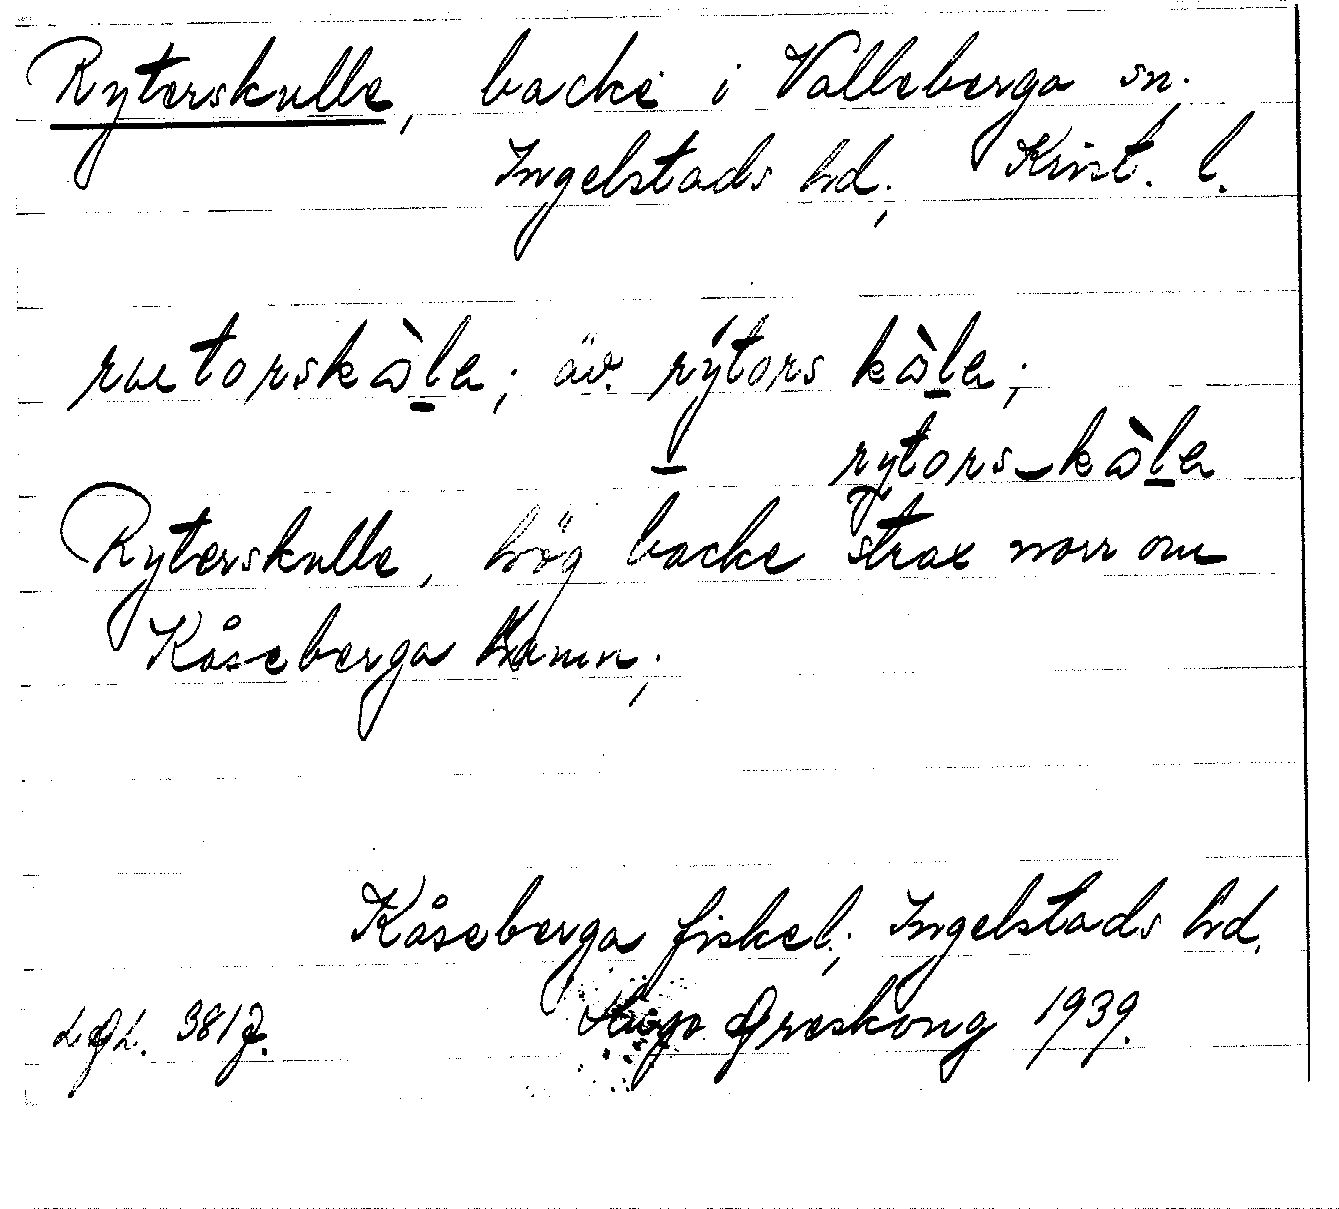 Ryterskulle, backe i Valleberga sn.
Ingelstads hd, Krist. l.
rutorskåla; äv. rýtors kåla;
rytors-kåla
Ryterskulle, hög backe strax norr om
Kåseberga hamn;
Kåseberga fiskel; Ingelstads hd.
LGL. 3817. Hugo Areskoug 1939.